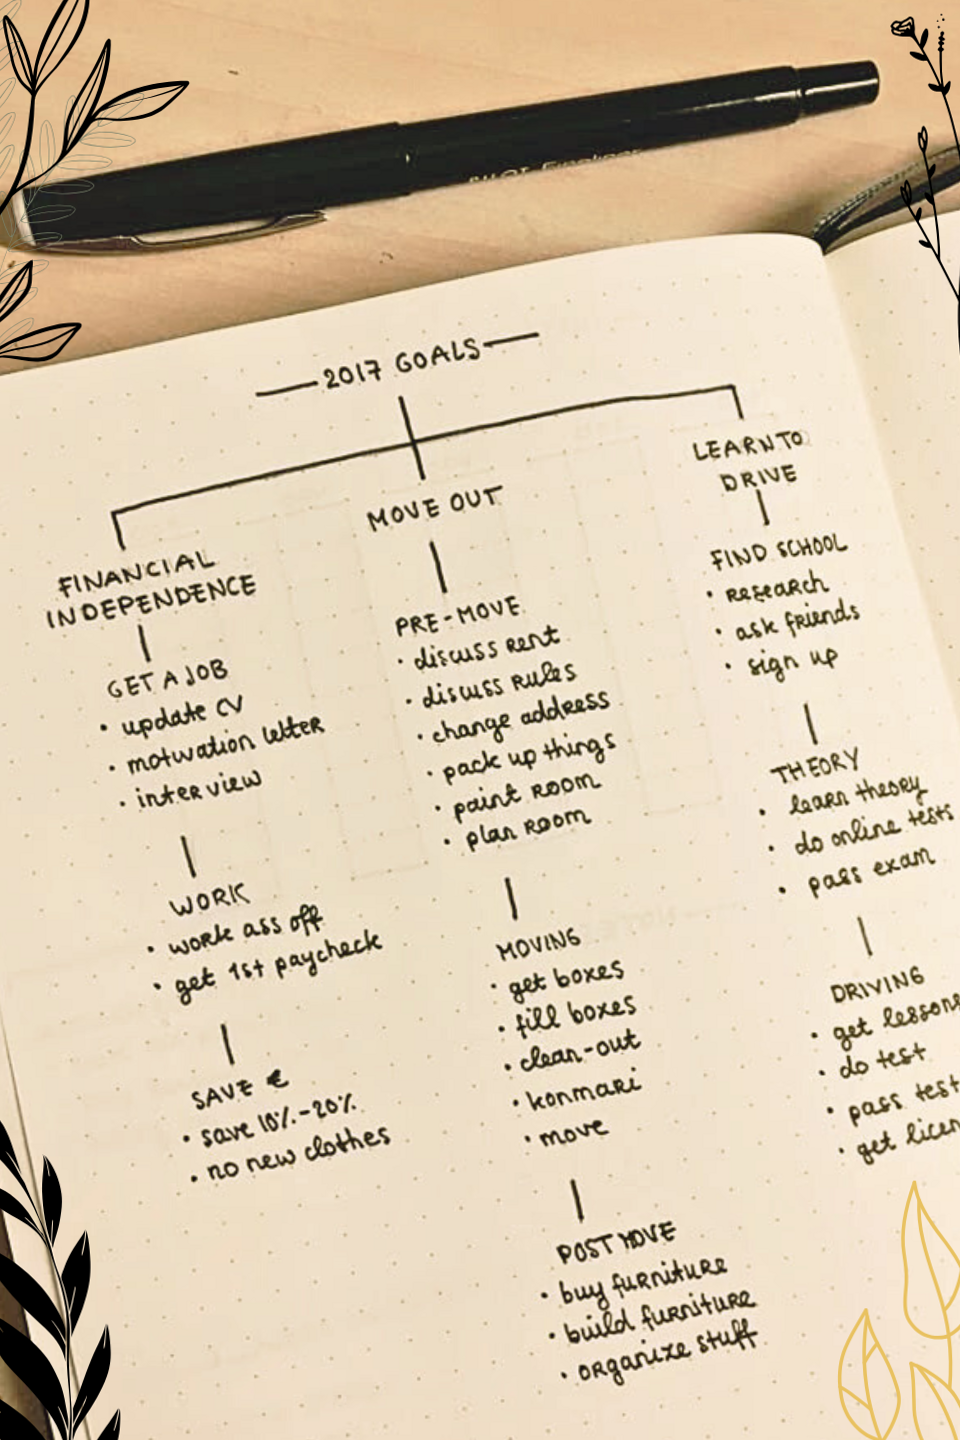 2017 GOALS
FINANCIAL
INDEPENDENCE
GET A JOB
• update CV
• motivation letter
• interview
WORK
• work ass off
• get 1st paycheck
SAVE €
• save 10%-20%
• no new clothes
MOVE OUT
PRE-MOVE
• discuss rent
• discuss rules
• change address
• pack up things
• paint room
• plan room
MOVING
• get boxes
• fill boxes
• clean-out
• konmari
• move
POST MOVE
• buy furniture
• build furniture
• organize stuff
LEARN TO
DRIVE
FIND SCHOOL
• research
• ask friends
• sign up
THEORY
• learn theory
• do online tests
• pass exam
DRIVING
• get lessons
• do test
• pass test
• get licen